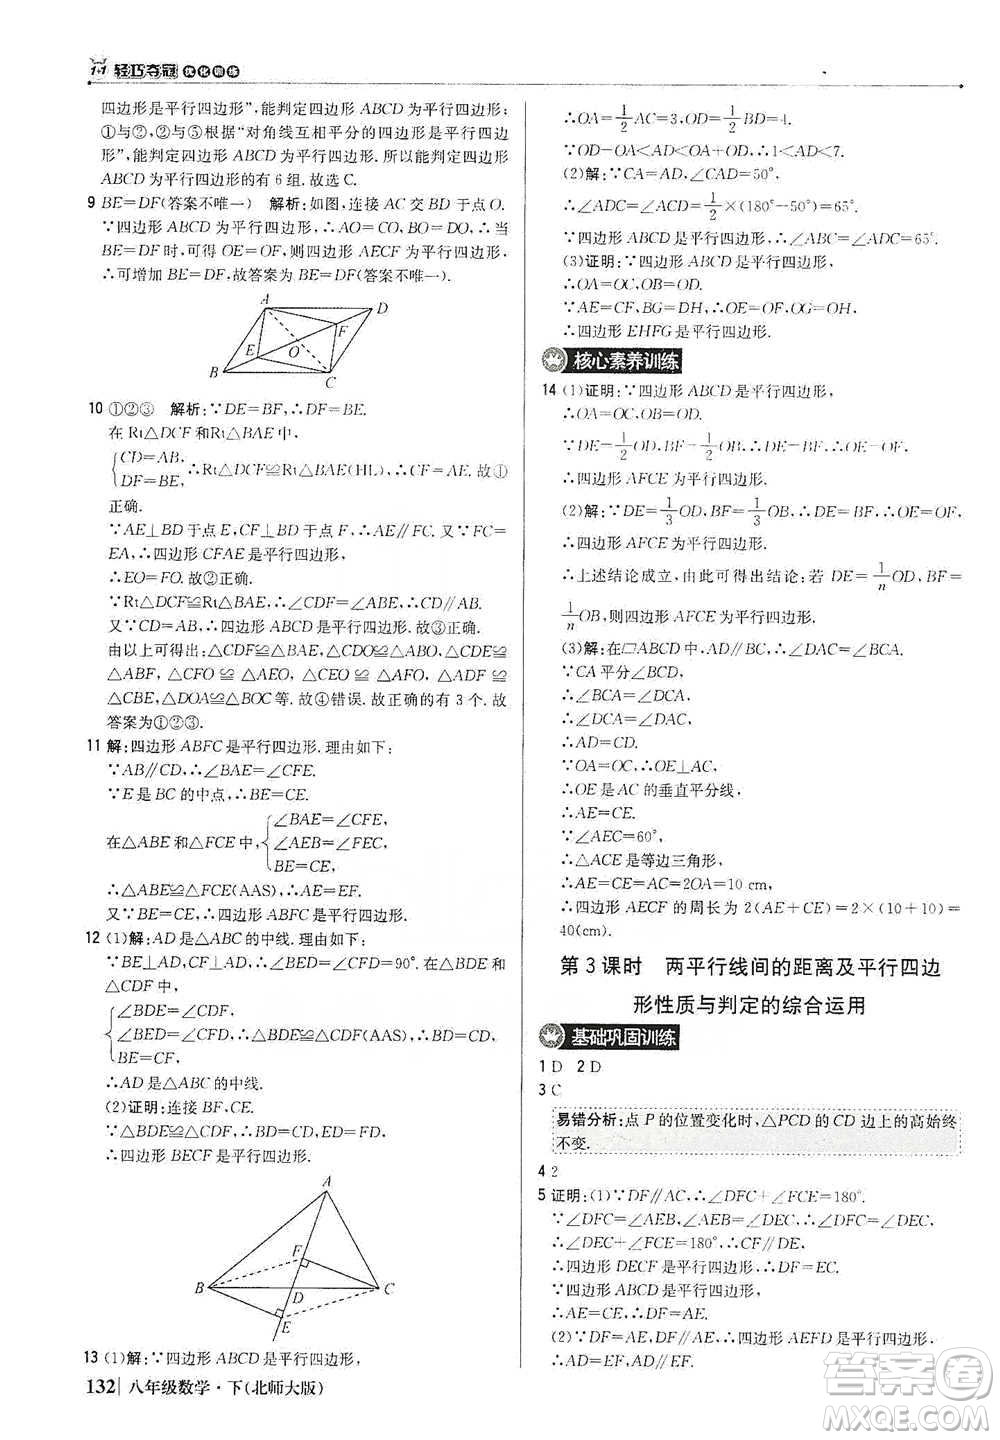 1+1 轻巧夺冠 优化训练
四边形是平行四边形”,能判定四边形 ABCD 为平行四边形;
①与②,②与⑤根据“对角线互相平分的四边形是平行四
边形”,能判定四边形 ABCD 为平行四边形. 所以能判定四边形
ABCD 为平行四边形的有 6 组. 故选 C.
9 BE=DF(答案不唯一) 解析:如图,连接 AC 交 BD 于点 O.
∵四边形 ABCD 为平行四边形,∴AO=CO,BO=DO,∴当
BE=DF 时,可得 OE=OF,则四边形 AECF 为平行四边形.
∴可增加 BE=DF,故答案为 BE=DF(答案不唯一).
A D
F
E O
B C
10 ①②③ 解析:∵DE=BF,∴DF=BE.
在 Rt△DCF 和Rt△BAE 中,
{CD=AB, DF=BE. ∴Rt△DCF≌Rt△BAE(HL),∴CF=AE. 故①
正确.
∵AE⊥BD 于点 E,CF⊥BD 于点 F,∴AE∥FC. 又∵FC=
EA,∴四边形 CFAE 是平行四边形,
∴EO=FO. 故②正确.
∵Rt△DCF≌Rt△BAE,∴∠CDF=∠ABE,∴CD∥AB.
又∵CD=AB,∴四边形 ABCD 是平行四边形. 故③正确.
由以上可得出:△CDF≌△BAE,△CDO≌△ABO,△CDE≌
△ABF,△CFO≌△AEO,△CEO≌△AFO,△ADF≌
△CBE,△DOA≌△BOC 等. 故④错误. 故正确的有 3 个. 故
答案为①②③.
11 解:四边形 ABFC 是平行四边形. 理由如下:
∵AB∥CD,∴∠BAE=∠CFE.
∵E 是 BC 的中点,∴BE=CE.
在△ABE 和△FCE 中,{∠BAE=∠CFE, ∠AEB=∠FEC, BE=CE.
∴△ABE≌△FCE(AAS),∴AE=EF.
又∵BE=CE,∴四边形 ABFC 是平行四边形.
12 (1)解:AD 是△ABC 的中线. 理由如下:
∵BE⊥AD,CF⊥AD,∴∠BED=∠CFD=90°. 在△BDE
和△CDF 中,
{∠BDE=∠CDF, ∠BED=∠CFD, BE=CF, ∴△BDE≌△CDF(AAS),∴BD=CD,
∴AD 是△ABC 的中线.
(2)证明:连接 BF,CE.
∵△BDE≌△CDF,∴ED=FD. 又∵BD=CD,
∴四边形 BECF 是平行四边形.
A
F
B D C
E
13 (1)解:∵四边形 ABCD 是平行四边形,
132 八年级数学·下(北师大版)
∴OA=1/2AC=3,OD=1/2BD=4.
∵OD-OA<AD<OA+OD,∴1<AD<7.
(2)解:∵CA=AD,∠CAD=50°,
∴∠ADC=1/2×(180°-50°)=65°.
∵四边形 ABCD 是平行四边形,∴∠ABC=∠ADC=65°.
(3)证明:∵四边形 ABCD 是平行四边形,
∴OA=OC,OB=OD.
∵AE=CF,BG=DH,∴OE=OF,OG=OH,
∴四边形 EHFG 是平行四边形.
核心素养训练
14 (1)证明:∵四边形 ABCD 是平行四边形,
∴OA=OC,OB=OD.
∵DE=1/2OD,BF=1/2OB,∴DE=BF,∴OE=OF.
∴四边形 AFCE 为平行四边形.
(2)解:∵DE=1/3OD,BF=1/3OB,∴DE=BF,∴OE=OF,
∴四边形 AFCE 为平行四边形.
∴上述结论成立,由此可得出结论:若 DE=1/nOD,BF=
1/nOB,则四边形 AFCE 为平行四边形.
(3)解:在▱ABCD 中,AD∥BC,∴∠DAC=∠BCA.
∵CA 平分∠BCD,
∴∠BCA=∠DCA,
∴∠DAC=∠DCA.
∴AD=CD.
∵OA=OC,∴OE⊥AC,
∴OE 是 AC 的垂直平分线,
∴AE=CE.
∵∠AEC=60°,
∴△ACE 是等边三角形,
∴AE=CE=AC=2OA=10 cm,
∴四边形 AECF 的周长为 2(AE+CE)=2×(10+10)=
40(cm).
第 3 课时 两平行线间的距离及平行四边
形性质与判定的综合运用
基础巩固训练
1 D 2 D
3 C
易错分析:点 P 的位置变化时,△PCD 的 CD 边上的高始终
不变.
4 2
5 证明:(1)∵DF∥AC,∴∠DFC+∠FCE=180°.
∵∠DFC=∠AEB,∠AEB=∠DEC,∴∠DFC=∠DEC,
∴∠DEC+∠FCE=180°,∴CF∥DE,
∴四边形 DECF 是平行四边形,∴DF=EC.
∵四边形 BDEC 是平行四边形,
∴AE=CE,∴DF=AE.
(2)∵DF=AE,DF∥AE,∴四边形 AEFD 是平行四边形,
精灵家教网
MXQE.COM